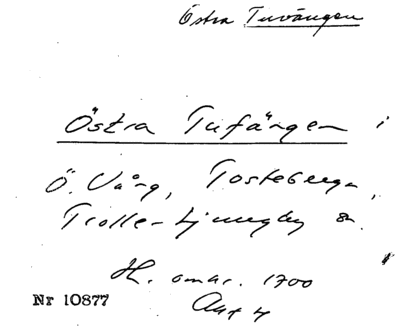 Östra Tuvängen
Östra Tufängen i
Ö. Vång, Tosteberga,
Trolle-Ljungby sn.
H. omar. 1700
Nr 10877